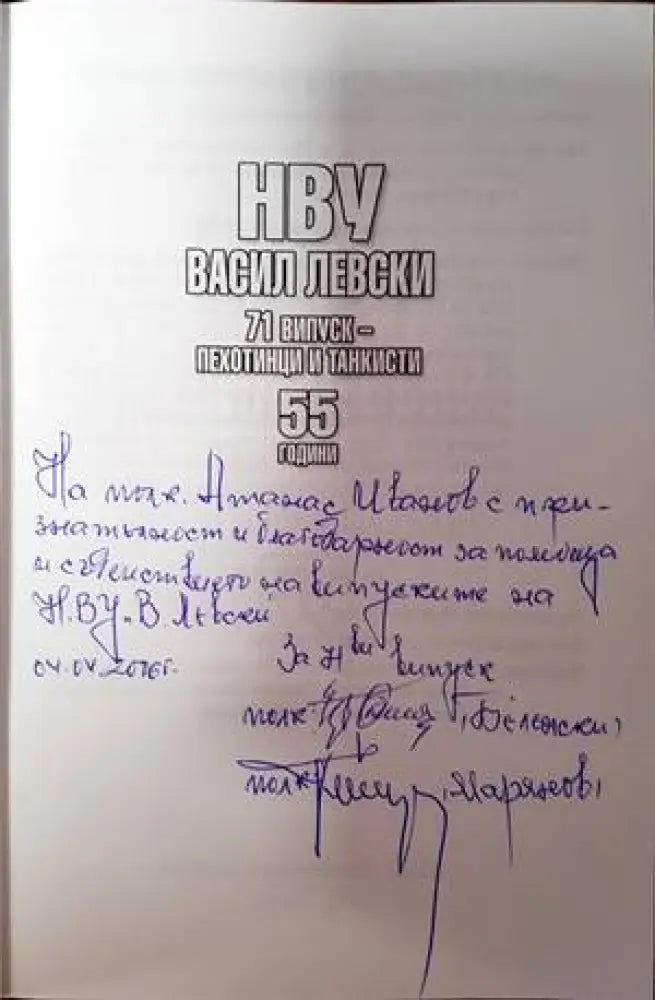 НВУ
ВАСИЛ ЛЕВСКИ
71 ВИПУСК –
ПЕХОТИНЦИ И ТАНКИСТИ
55
ГОДИНИ
На полк. Атанас Иванов с при-
знателност и благодарност за помощта
и съдействието на випуските на
Н.ВУ.В. Левски
04.04.2016г.
За 71ви випуск
полк.
полк. (Марянов)